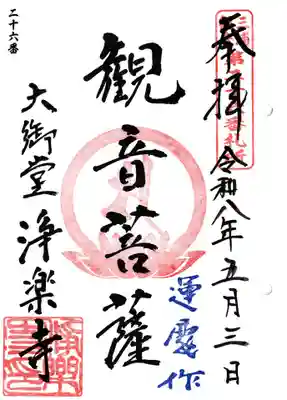 奉拝 令和八年五月三日
運慶作
観音菩薩
大御堂 浄楽寺
二十六番